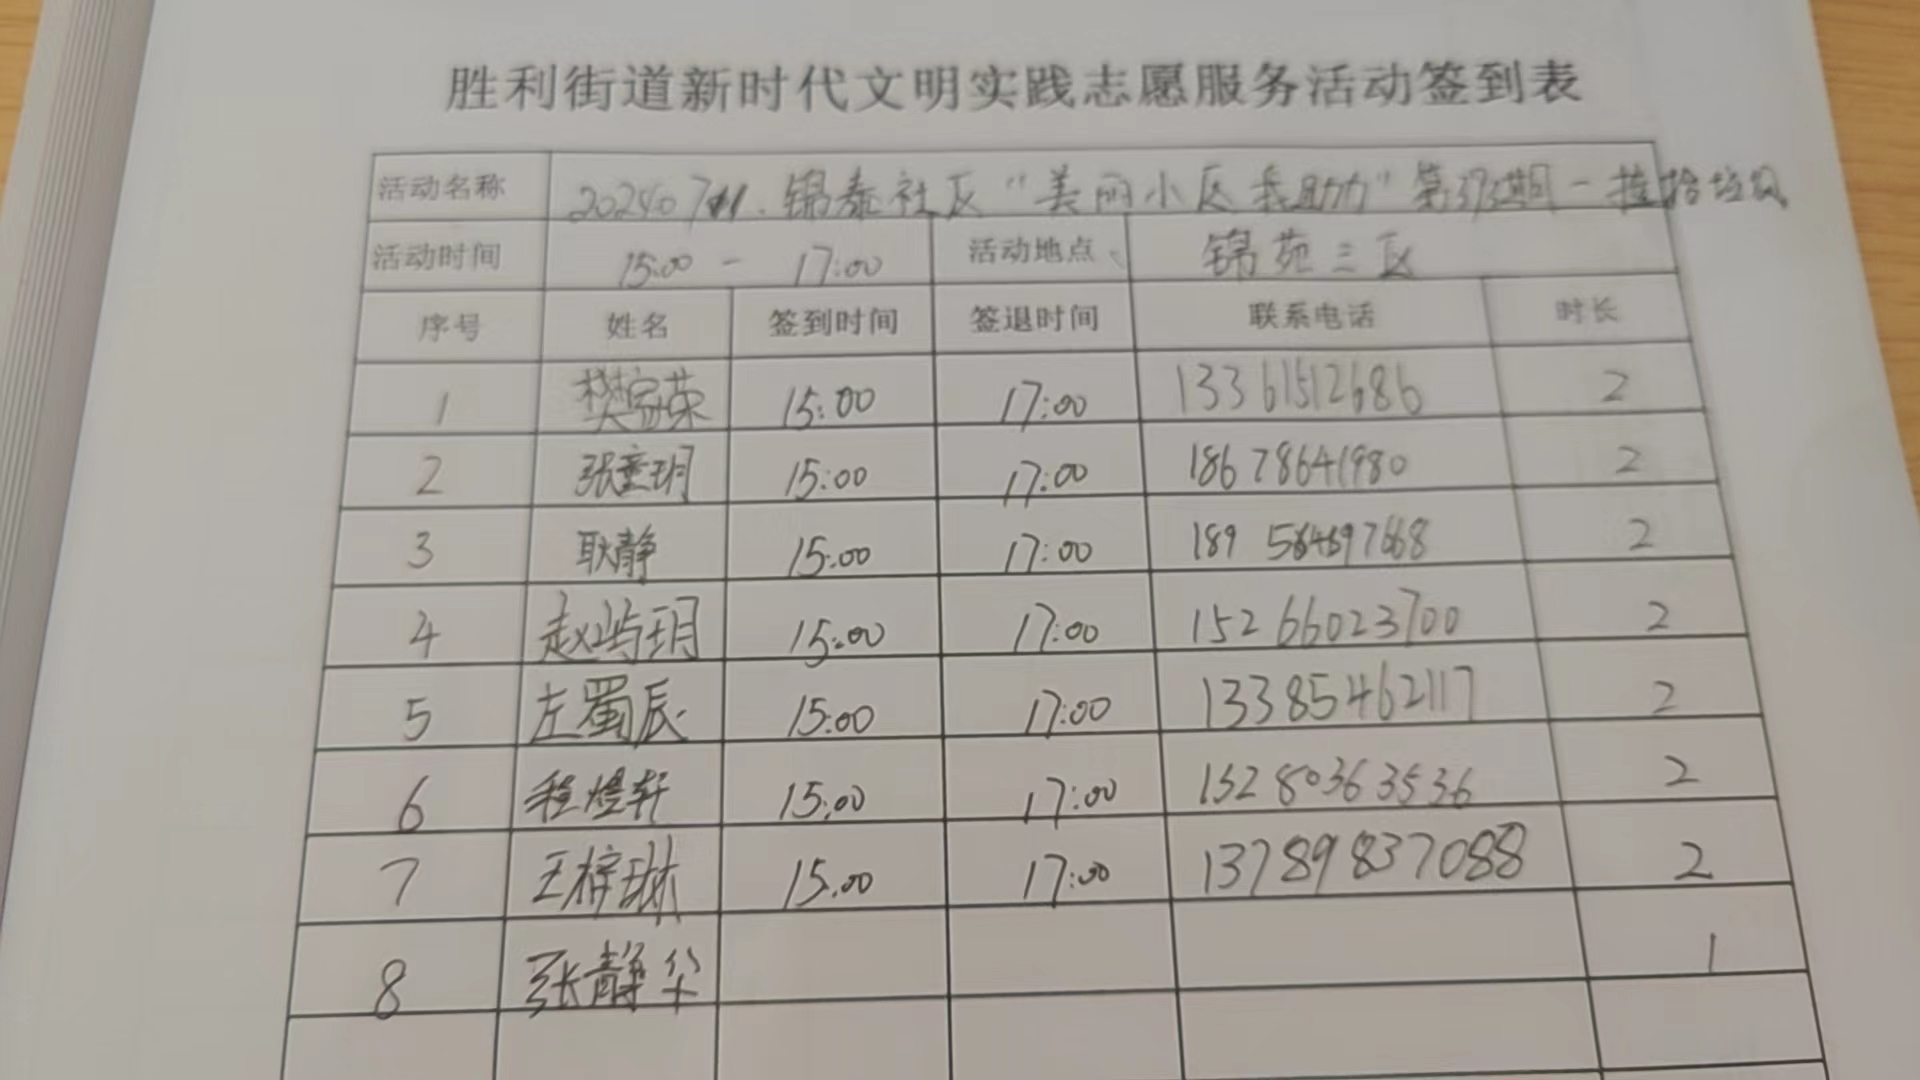 胜利街道新时代文明实践志愿服务活动签到表
活动名称 20240711.锦泰社区“美丽小区我助力”第373期-捡拾垃圾
活动时间 15:00 - 17:00 活动地点 锦苑三区
序号 姓名 签到时间 签退时间 联系电话 时长
1 樊家荣 15:00 17:00 13361512686 2
2 张童玥 15:00 17:00 18678641980 2
3 耿静 15:00 17:00 2
4 赵屿玥 15:00 17:00 15266023700 2
5 左蜀辰 15:00 17:00 13385462117 2
6 程煜轩 15:00 17:00 15280363536 2
7 王梓琳 15:00 17:00 13789837088 2
8 张静华 1